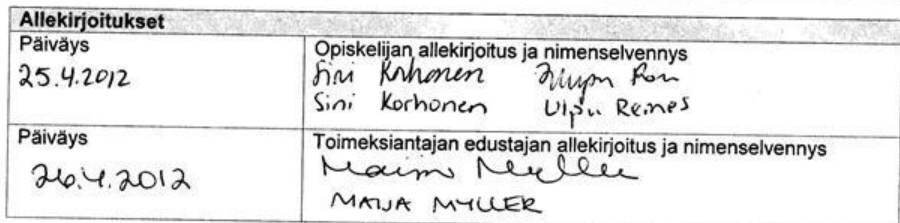 Allekirjoitukset
Päiväys
Opiskelijan allekirjoitus ja nimenselvennys
25.4.2012
Sini Korhonen
Sini Korhonen Ulpu Reines
Päiväys
Toimeksiantajan edustajan allekirjoitus ja nimenselvennys
26.4.2012
Maija Myller
MAIJA MYLLER